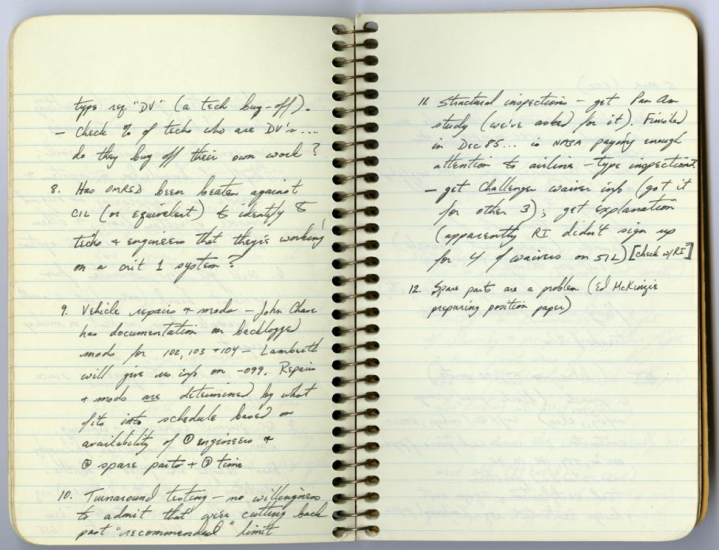 type req. "DV" (a tech buy-off).
- Check % of techs who are DV's...
do they buy off their own work?
8. Has OMRSD been beaten against
CIL (or equivalent) to identify to
techs + engineers that they're working
on a crit 1 system?
9. Vehicle repairs + mods - John Chase
has documentation on backlogged
mods for 102, 103 + 104 - Lamberth
will give us info on -099. Repairs
+ mods are determined by what
fits into schedule based on
availability of ① engineers +
② spare parts + ③ time
10. Turnaround testing - no willingness
to admit that we're cutting back
past "recommended" limit
11. Structural inspections - get Pan Am
study (we've asked for it). Finished
in Dec 85... is NASA paying enough
attention to airline-type inspections
- get Challenger waiver info (got it
for other 3); get explanation
(apparently RI didn't sign up
for 4 of waivers on 51L) [check w/RI]
12. Spare parts are a problem (Ed McKinzie
preparing position paper)